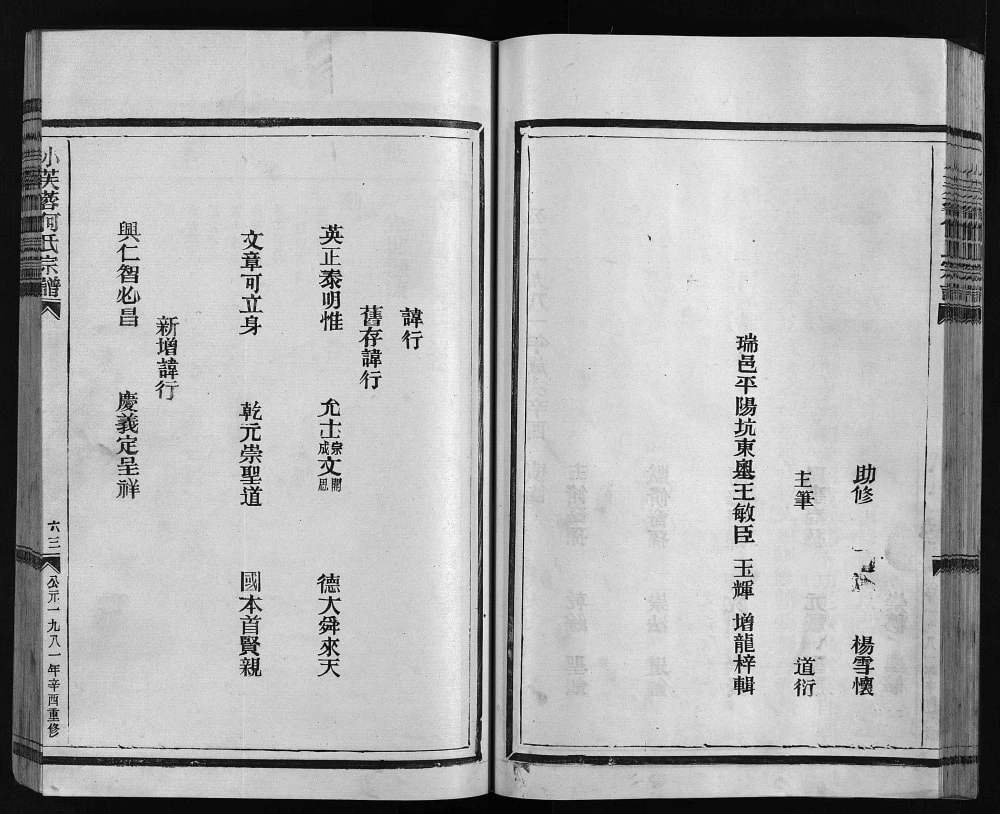 助修 楊雪懷
主筆 道衍
瑞邑平陽坑東𡒉王敏臣 玉輝 增龍梓輯
諱行
舊存諱行
英正泰明惟 允士宗成文開思 德大舜來天
文章可立身 乾元崇聖道 國本首賢親
新增諱行
興仁智必昌 慶義定呈祥
小芙蓉何氏宗譜
六三
公元一九八一年辛酉重修